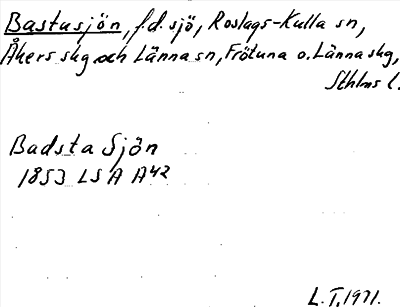 Bastusjön, f.d. sjö, Roslags-Kulla sn,
Åkers skg och Länna sn, Frötuna o. Länna skg,
Sthlms l.
Badsta Sjön
1853 LSA A42
L.T. 1971.